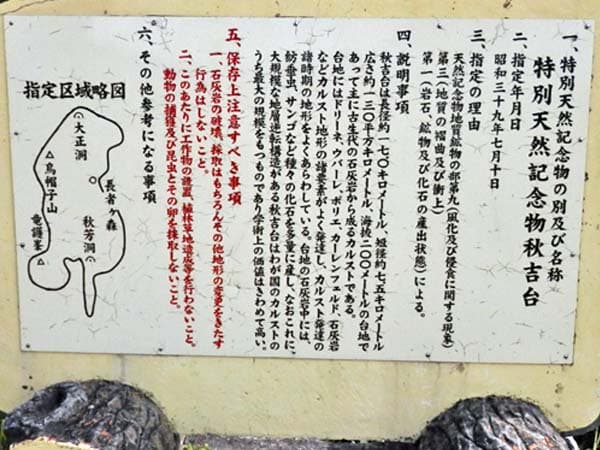 一、特別天然記念物の別及び名称
特別天然記念物秋吉台
二、指定年月日
昭和三十九年七月十日
三、指定の理由
天然記念物地質鉱物の部第九（風化及び侵食に関する現象）
第三（地質の褶曲及び衝上）
第一（岩石、鉱物及び化石の産出状態）による。
四、説明事項
秋吉台は長径約一七〇キロメートル、短径約七、五キロメートル
広さ約一三〇平方キロメートル、海抜二〇〇メートルの台地で
あって主に古生代の石灰岩から成るカルストである。
台地にはドリーネ、ウバーレ、ポリエ、カーレンフェルド、石灰岩
などカルスト地形の諸要素がよく発達し、カルスト発達の
諸時期の地形をよくあらわしている。台地の石灰岩中には、
紡錘虫、サンゴなど種々の化石を多量に産し、なおこれに
大規模な地層逆転構造がある秋吉台はわが国のカルストの
うち最大の規模をもつものであり学術上の価値はきわめて高い。
五、保存上注意すべき事項
一、石灰岩の破壊、採取はもちろんその他地形の変更をきたす
行為はしないこと。
二、このあたりに工作物の設置、植林草地造成等を行わないこと。
動物の捕獲及び昆虫とその卵を採取しないこと。
六、その他参考になる事項
指定区域略図
大正洞
長者ヶ森
烏帽子山
秋芳洞
竜護峯